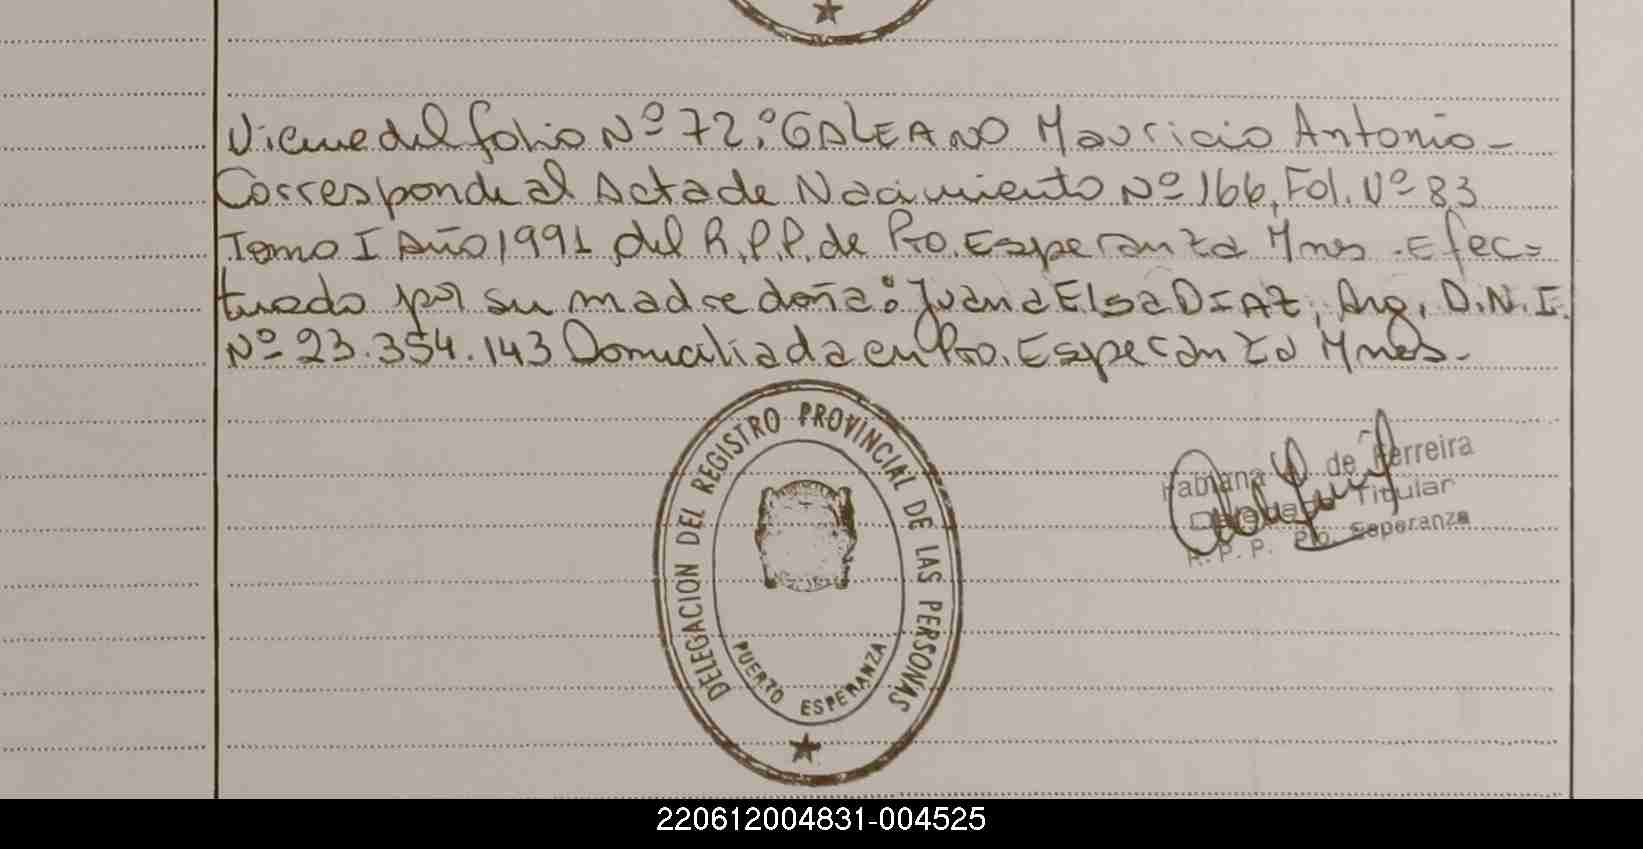 Viene del folio Nº 72: GALEANO Mauricio Antonio-
Corresponde al Acta de Nacimiento Nº 166, Fol. Nº 83
Tomo I Año 1991 del R.P.P. de Pto. Esperanza Mnes. Efec=
tuado por su madre doña: Juana Elsa DIAZ, Arg. D.N.I.
Nº 23.354.143 Domiciliada en Pto. Esperanza Mnes.-
DELEGACION DEL REGISTRO PROVINCIAL DE LAS PERSONAS
PUERTO ESPERANZA
Fabiana de Ferreira
Titular
R. P. P. Pto. Esperanza
220612004831-004525